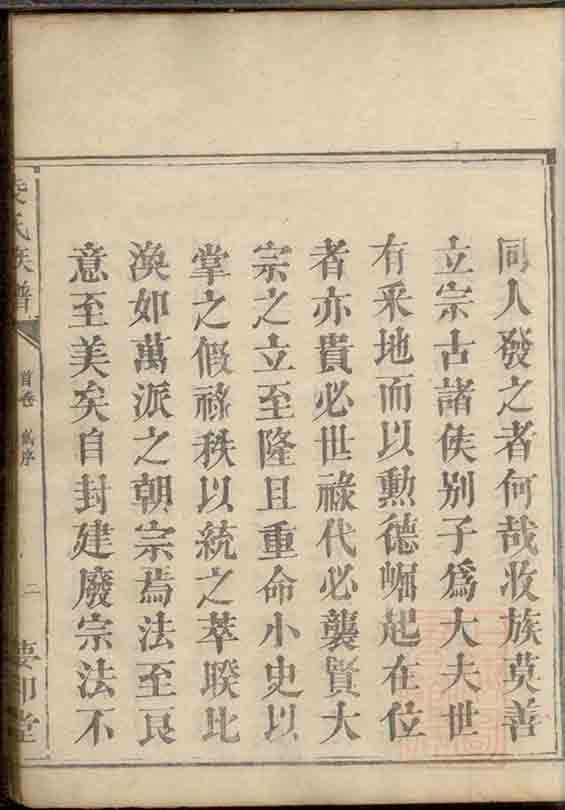 同人發之者何哉收族莫善
立宗古諸侯别子爲大夫世
有采地而以勲德崛起在位
者亦貴必世祿代必襲賢大
宗之立至隆且重命小史以
掌之假祿秩以統之萃睽比
渙如萬派之朝宗焉法至良
意至美矣自封建廢宗法不
氏族譜
首卷 舊序
二
堂